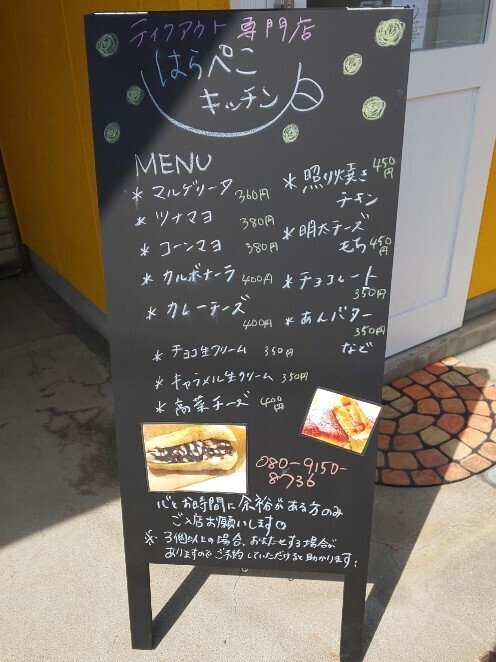 テイクアウト専門店
はらぺこ
キッチン
MENU
* マルゲリータ 360円
* ツナマヨ 380円
* コーンマヨ 380円
* カルボナーラ 400円
* カレーチーズ 400円
* チョコ生クリーム 350円
* キャラメル生クリーム 350円
* 高菜チーズ 400円
* 照り焼き
チキン 450円
* 明太チーズ
もち 450円
* チョコレート
350円
* あんバター
350円
など
080-9150-
8736
心とお時間に余裕がある方のみ
ご入店お願いします。
※ 3個以上の場合、お待たせする場合が
ありますのでご予約していただけると助かります。